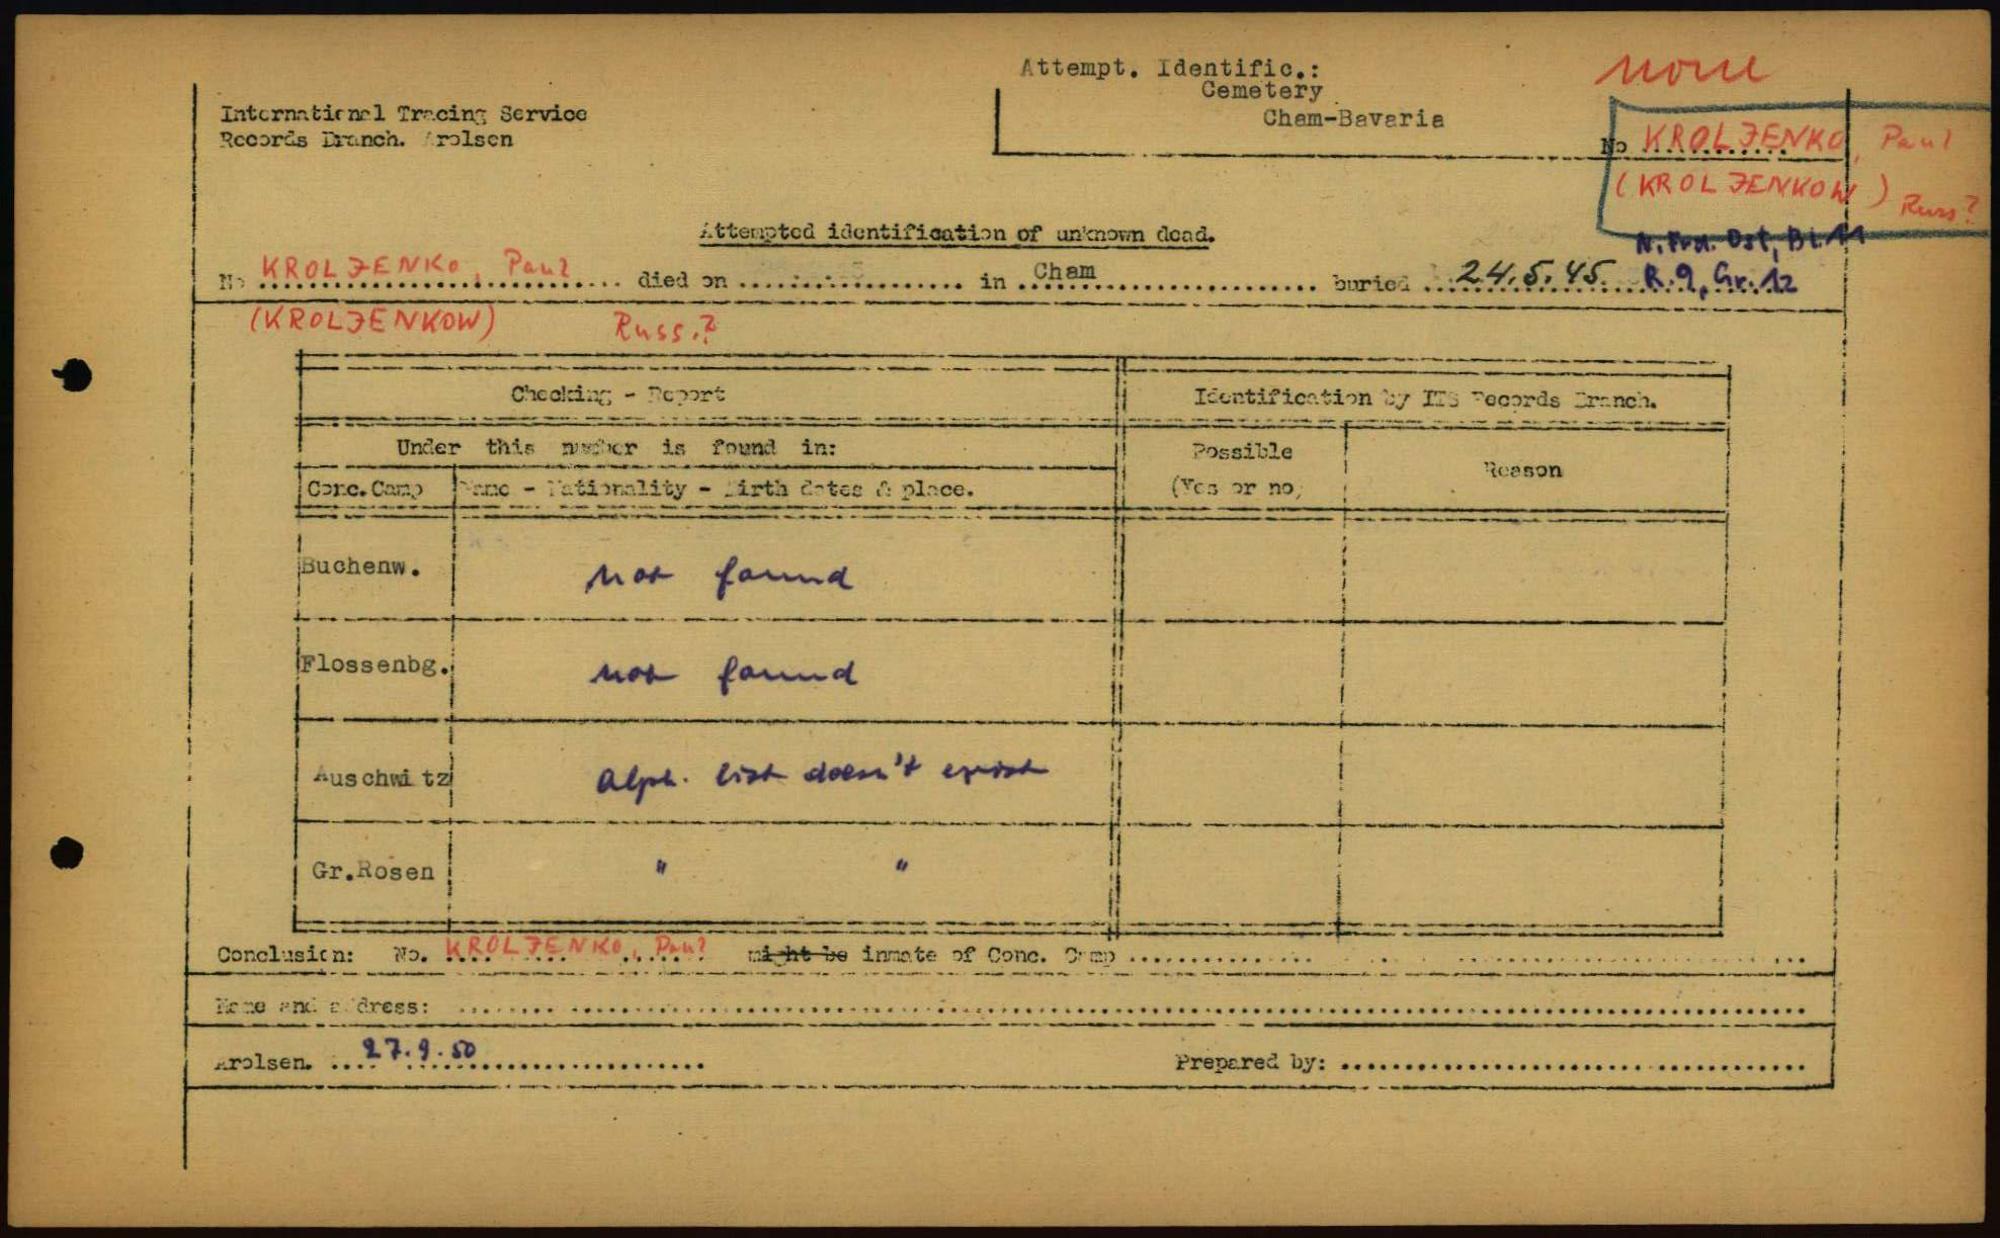 Attempt. Identific.:
Cemetery
Cham-Bavaria
none
International Tracing Service
Records Branch. Arolsen
No KROLJENKO, Paul
(KROLJENKOW) Russ?
Attempted identification of unknown dead.
Ost, Bl. 11
No KROLJENKO, Paul died on .................. in Cham buried 24.5.45. R.9, Gr.12
(KROLJENKOW) Russ.?
Checking - Report
Identification by ITS Records Branch.
Under this number is found in:
Possible
(Yes or no)
Reason
Conc.Camp
Name - Nationality - Birth dates & place.
Buchenw. not found
Flossenbg. not found
Auschwitz Alph. list doesn't exist
Gr.Rosen " "
Conclusion: No. KROLJENKO, Paul might be inmate of Conc. Camp ..................
Name and address: ..................
Arolsen. 27.9.50 Prepared by: ..................